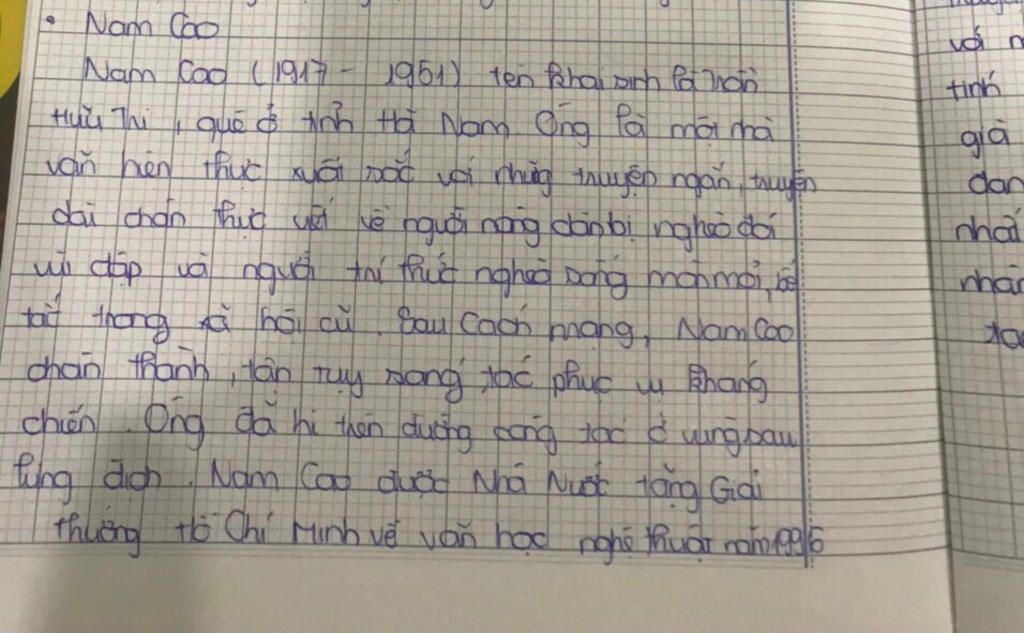 • Nam Cao
Nam Cao (1917 - 1951) tên khai sinh là Trần
Hữu Tri, quê ở tỉnh Hà Nam. Ông là một nhà
văn hiện thực xuất sắc với những truyện ngắn, truyện
dài chân thực viết về người nông dân bị nghèo đói
vùi dập và người trí thức nghèo sống mòn mỏi, bế
tắc trong xã hội cũ. Sau Cách mạng, Nam Cao
chân thành, tận tụy sáng tác phục vụ kháng
chiến. Ông đã hi sinh trên đường công tác ở vùng sau
lưng địch. Nam Cao được Nhà Nước tặng Giải
thưởng Hồ Chí Minh về văn học nghệ thuật năm 1996
với
tính
giả
dan
nhất